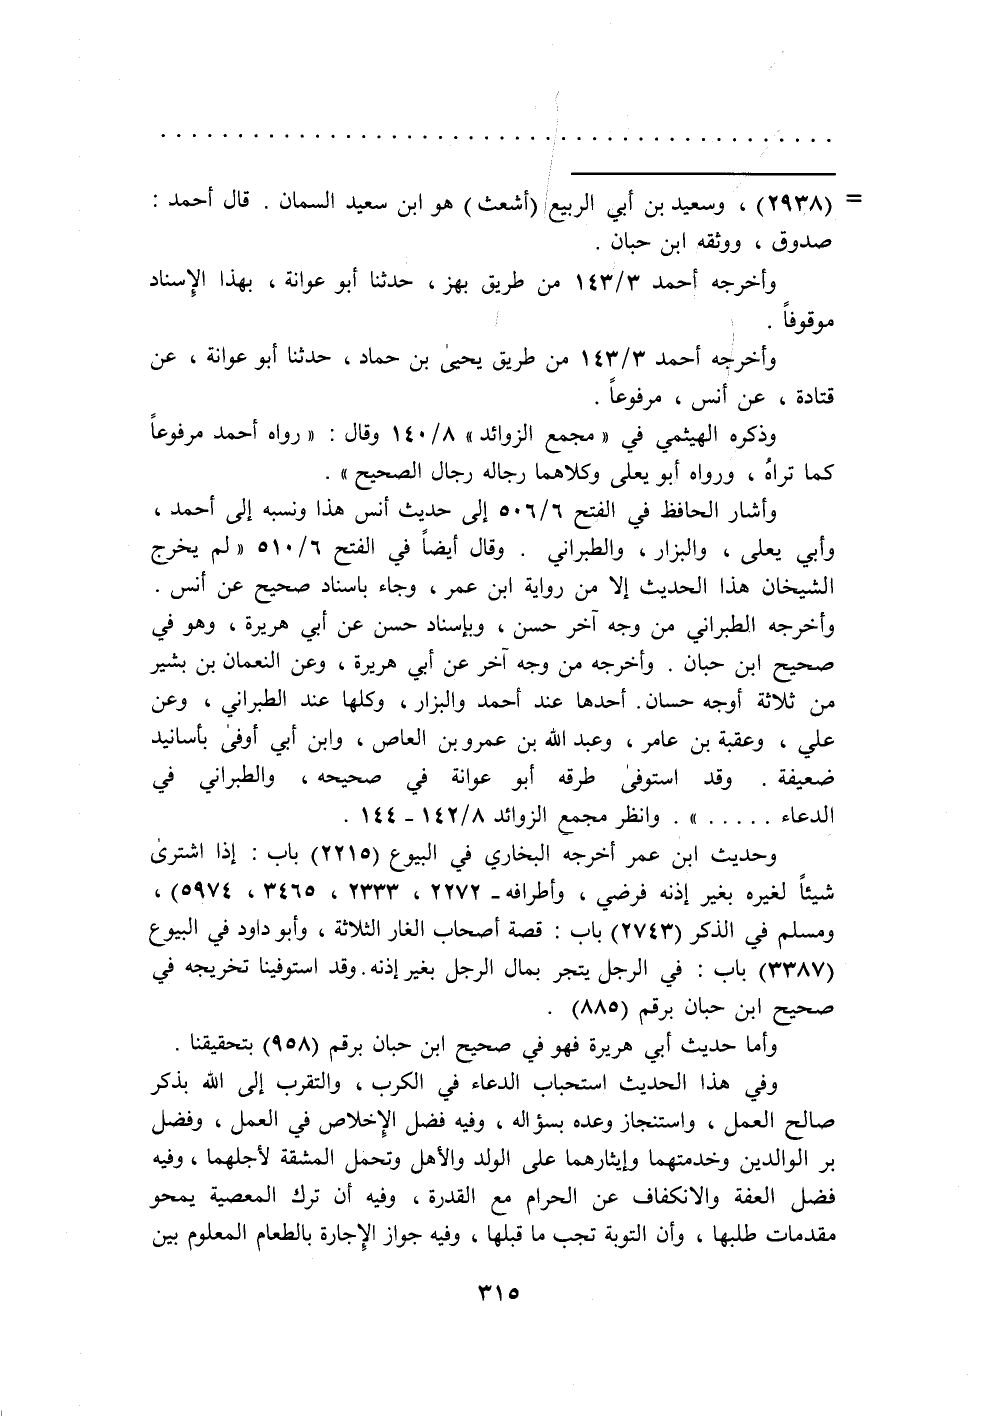 . . . . . . . . . . . . . . . . . . . . . . . . . . . . . . . . . . . . . . . . . . .
= (٢٩٣٨) ، وسعيد بن أبي الربيع (أشعث) هو ابن سعيد السمان . قال أحمد :
صدوق ، ووثقه ابن حبان .
وأخرجه أحمد ١٤٣/٣ من طريق بهز ، حدثنا أبو عوانة ، بهذا الإسناد
موقوفاً .
وأخرجه أحمد ١٤٣/٣ من طريق يحيىٰ بن حماد ، حدثنا أبو عوانة ، عن
قتادة ، عن أنس ، مرفوعاً .
وذكره الهيثمي في « مجمع الزوائد » ١٤٠/٨ وقال : « رواه أحمد مرفوعاً
كما تراهُ ، ورواه أبو يعلى وكلاهما رجاله رجال الصحيح » .
وأشار الحافظ في الفتح ٥٠٦/٦ إلى حديث أنس هذا ونسبه إلى أحمد ،
وأبي يعلى ، والبزار ، والطبراني . وقال أيضاً في الفتح ٥١٠/٦ « لم يخرج
الشيخان هذا الحديث إلا من رواية ابن عمر ، وجاء باسناد صحيح عن أنس .
وأخرجه الطبراني من وجه آخر حسن ، وبإسناد حسن عن أبي هريرة ، وهو في
صحيح ابن حبان . وأخرجه من وجه آخر عن أبي هريرة ، وعن النعمان بن بشير
من ثلاثة أوجه حسان . أحدها عند أحمد والبزار ، وكلها عند الطبراني ، وعن
علي ، وعقبة بن عامر ، وعبد الله بن عمرو بن العاص ، وابن أبي أوفىٰ بأسانيد
ضعيفة . وقد استوفىٰ طرقه أبو عوانة في صحيحه ، والطبراني في
الدعاء . . . . . » . وانظر مجمع الزوائد ١٤٢/٨ - ١٤٤ .
وحديث ابن عمر أخرجه البخاري في البيوع (٢٢١٥) باب : إذا اشترىٰ
شيئاً لغيره بغير إذنه فرضي ، وأطرافه - ٢٢٧٢ ، ٢٣٣٣ ، ٣٤٦٥ ، ٥٩٧٤) ،
ومسلم في الذكر (٢٧٤٣) باب : قصة أصحاب الغار الثلاثة ، وأبو داود في البيوع
(٣٣٨٧) باب : في الرجل يتجر بمال الرجل بغير إذنه . وقد استوفينا تخريجه في
صحيح ابن حبان برقم (٨٨٥) .
وأما حديث أبي هريرة فهو في صحيح ابن حبان برقم (٩٥٨) بتحقيقنا .
وفي هذا الحديث استحباب الدعاء في الكرب ، والتقرب إلى الله بذكر
صالح العمل ، واستنجاز وعده بسؤاله ، وفيه فضل الإخلاص في العمل ، وفضل
بر الوالدين وخدمتهما وإيثارهما على الولد والأهل وتحمل المشقة لأجلهما ، وفيه
فضل العفة والانكفاف عن الحرام مع القدرة ، وفيه أن ترك المعصية يمحو
مقدمات طلبها ، وأن التوبة تجب ما قبلها ، وفيه جواز الإجارة بالطعام المعلوم بين
٣١٥